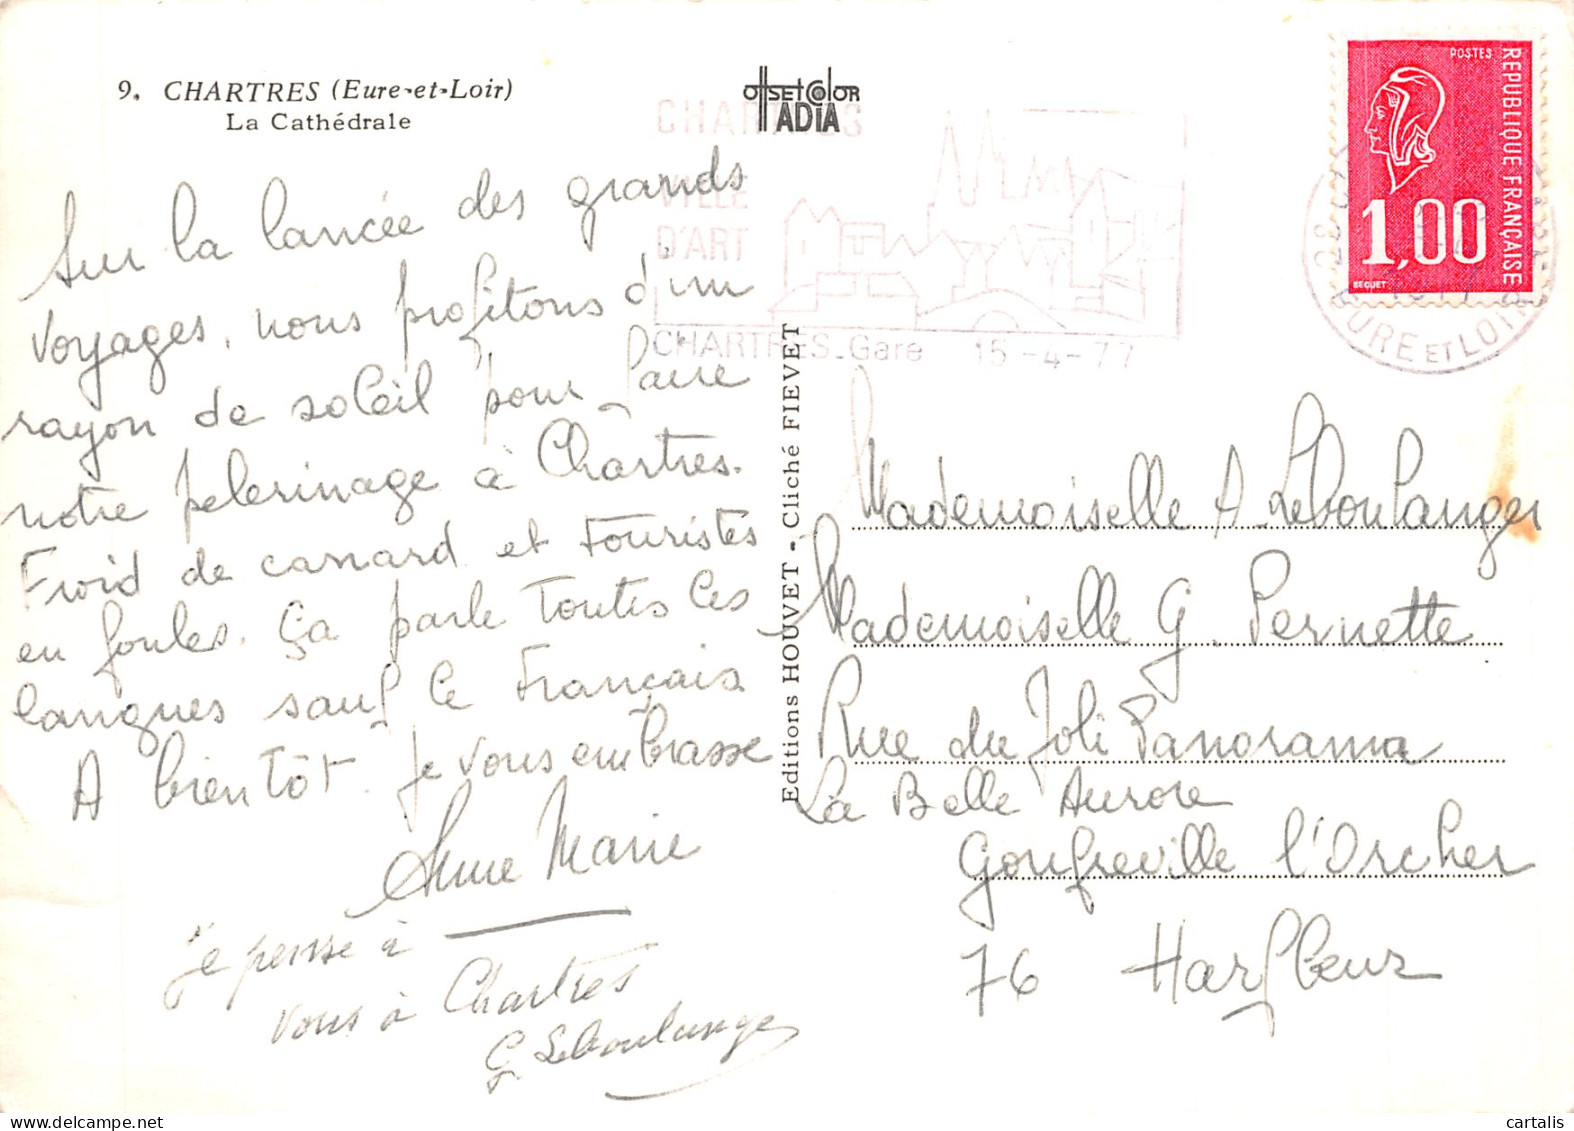 9. CHARTRES (Eure-et-Loir)
La Cathédrale
OffSEt ColOR
ADIA
CHARTRES
VILLE
D'ART
CHARTRES_Gare 15-4-77
POSTES
REPUBLIQUE FRANÇAISE
1,00
BEQUET
EURE ET LOIR
Sur la lancée des grands
voyages, nous profitons d'un
rayon de soleil pour faire
notre pelerinage à Chartres.
Froid de canard et touristes
en foules. Ça parle toutes les
langues sauf le Français
A bientôt. Je vous embrasse
Anne Marie
Je pense à
vous à Chartres
G. Leboulanger
Editions HOUVET - Cliché FIEVET
Mademoiselle A. Leboulanger
Mademoiselle G. Pernette
Rue du Joli Panorama
La Belle Aurore
Gonfreville l'Orcher
76 Harfleur
cartalis